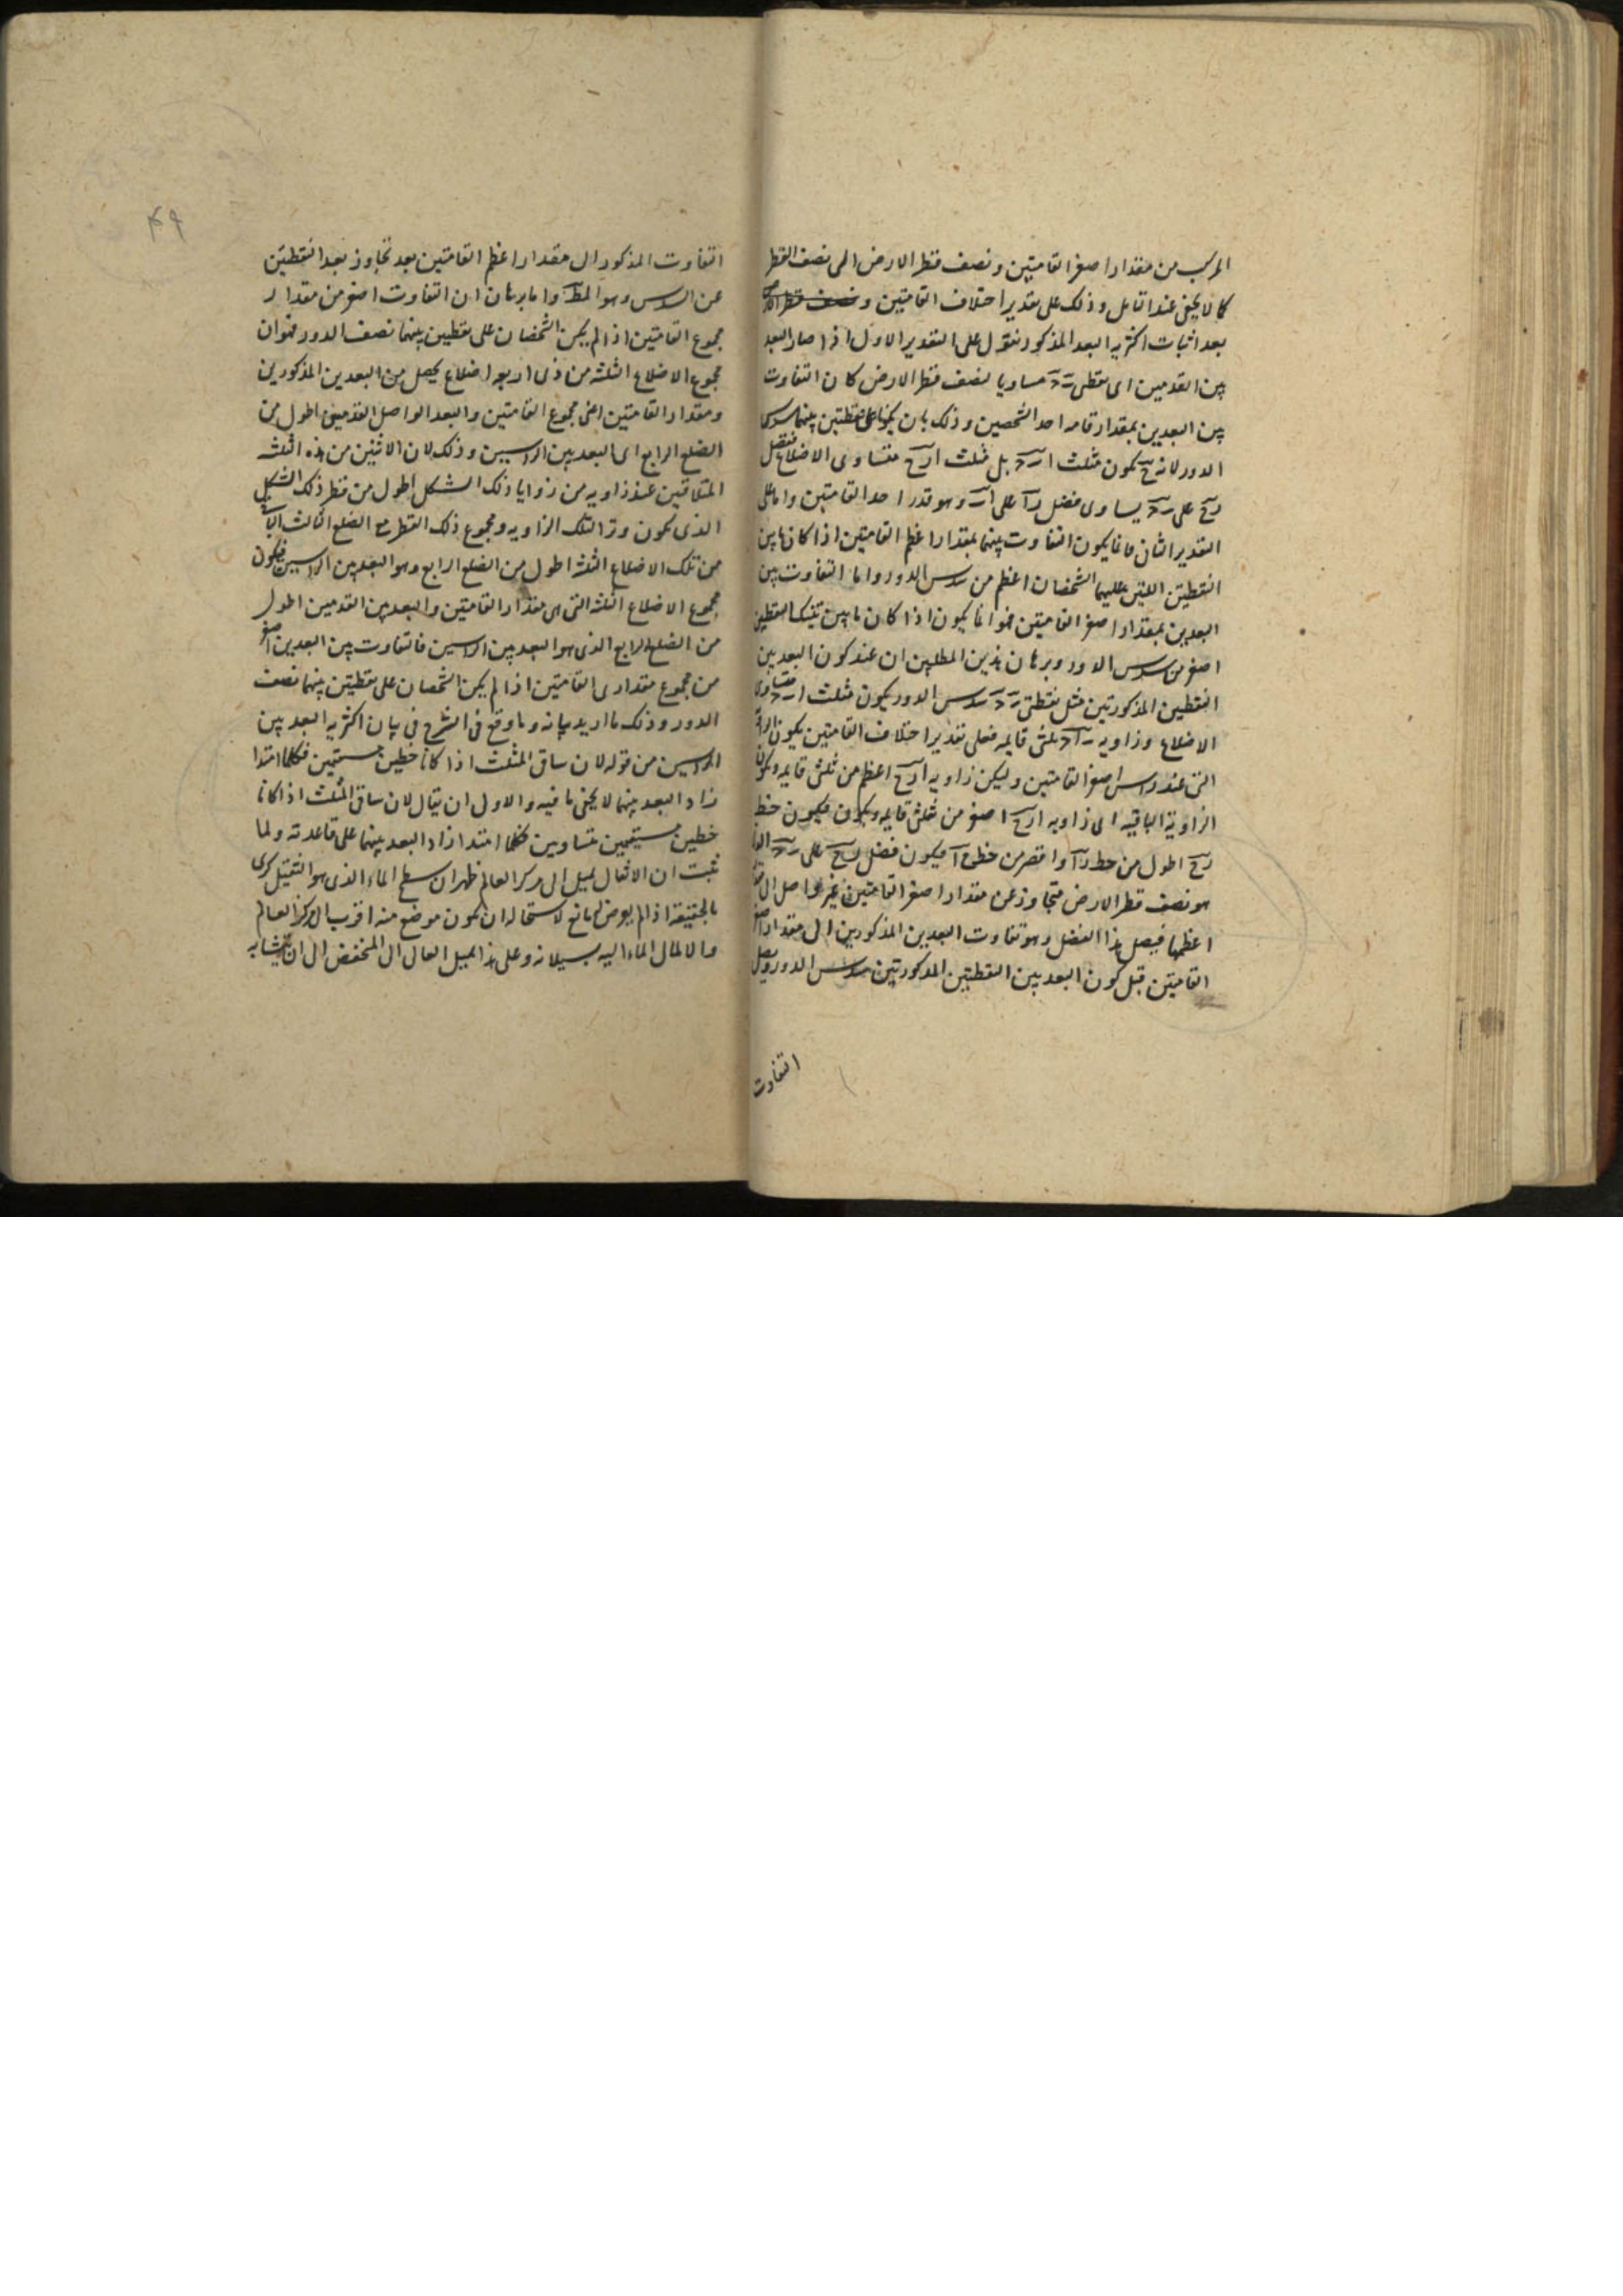 المركب من مقدار اصغر القامتين ونصف قطر الارض الى نصف القطر
كما لا يخفى عند التامل وذلك على تقدير اختلاف القامتين و
بعد اثبات اكثرية البعد المذكور نقول على التقدير الاول اذا صار البعد
بين القدمين اى نقطتى مساويا لنصف قطر الارض كان التفاوت
بين البعدين بمقدار قامة احد الشخصين وذلك بان يكونا على نقطتين بينهما سدس
الدور لانه ح يكون مثلث بل مثلث متساوى الاضلاع ففضل
على يساوى فضل على وهو قدر احد القامتين واما على
التقدير الثانى فانما يكون التفاوت بينهما بمقدار اعظم القامتين اذا كان ما بين
النقطتين اللتين عليهما الشخصان اعظم من سدس الدور واما التفاوت بين
البعدين بمقدار اصغر القامتين فهو انما يكون اذا كان ما بين تينك النقطتين
اصغر من سدس الدور وبرهان هذين المطلبين ان عند كون البعد بين
النقطتين المذكورتين مثل نقطتى سدس الدور يكون مثلث متساوى
الاضلاع وزاوية ثلثى قايمه فعلى تقدير اختلاف القامتين يكون الزاوية
التى عند راس اصغر القامتين وليكن زاوية ارح اعظم من ثلثى قايمه ويكون
الزاوية الباقيه اى زاويه اصغر من ثلثى قايمه فيكون خط
رح اطول من خط را واقصر من خط فيكون فضل رح على
هو نصف قطر الارض متجاوز عن مقدار اصغر القامتين غير واصل الى
اعظمها فيصل هذا الفضل وهو تفاوت البعدين المذكورين الى مقدار اصغر
القامتين قبل كون البعد بين النقطتين المذكورتين سدس الدور ويصل
التفاوت
٤٩
التفاوت المذكور الى مقدار اعظم القامتين بعد تجاوز بعد النقطتين
عن السدس وهو المط واما برهان ان التفاوت اصغر من مقدار
مجموع القامتين اذا لم يكن الشخصان على نقطتين بينهما نصف الدور فهو ان
مجموع الاضلاع الثلثه من ذى اربعة اضلاع يحصل من البعدين المذكورين
ومقدار القامتين اعنى مجموع القامتين والبعد الواصل القدمين اطول من
الضلع الرابع اى البعد بين الراسين وذلك لان الاثنين من هذه الثلثه
المتلاقيين عند زاويه من زوايا ذلك الشكل اطول من قطر ذلك الشكل
الذى يكون وترا لتلك الزاويه ومجموع ذلك القطر مع الضلع الثالث الباقى
من تلك الاضلاع الثلثه اطول من الضلع الرابع وهو البعد بين الراسين فيكون
مجموع الاضلاع الثلثه التى هى مقدار القامتين والبعد بين القدمين اطول
من الضلع الرابع الذى هو البعد بين الراسين فالتفاوت بين البعدين اصغر
من مجموع مقدارى القامتين اذا لم يكن الشخصان على نقطتين بينهما نصف
الدور وذلك ما اريد بيانه وما وقع فى الشرح فى بيان اكثرية البعد بين
الراسين من قوله لان ساقى المثلث اذا كانا خطين مستقيمين فكلما امتدا
زاد البعد بينهما لا يخفى ما فيه والاولى ان يقال لان ساقى المثلث اذا كانا
خطين مستقيمين متساويين كلما امتدا زاد البعد بينهما على قاعدته ولما
ثبت ان الاثقال يميل الى مركز العالم ظهر ان سطح الماء الذى هو الثقيل كرى
بالحقيقة اذا لم يعرض له مانع لاستحالة ان يكون موضع منه اقرب الى مركز العالم
والا لمال الماء اليه بسيلانه وعلى هذا يميل العالى الى المنخفض الى ان يتشابه